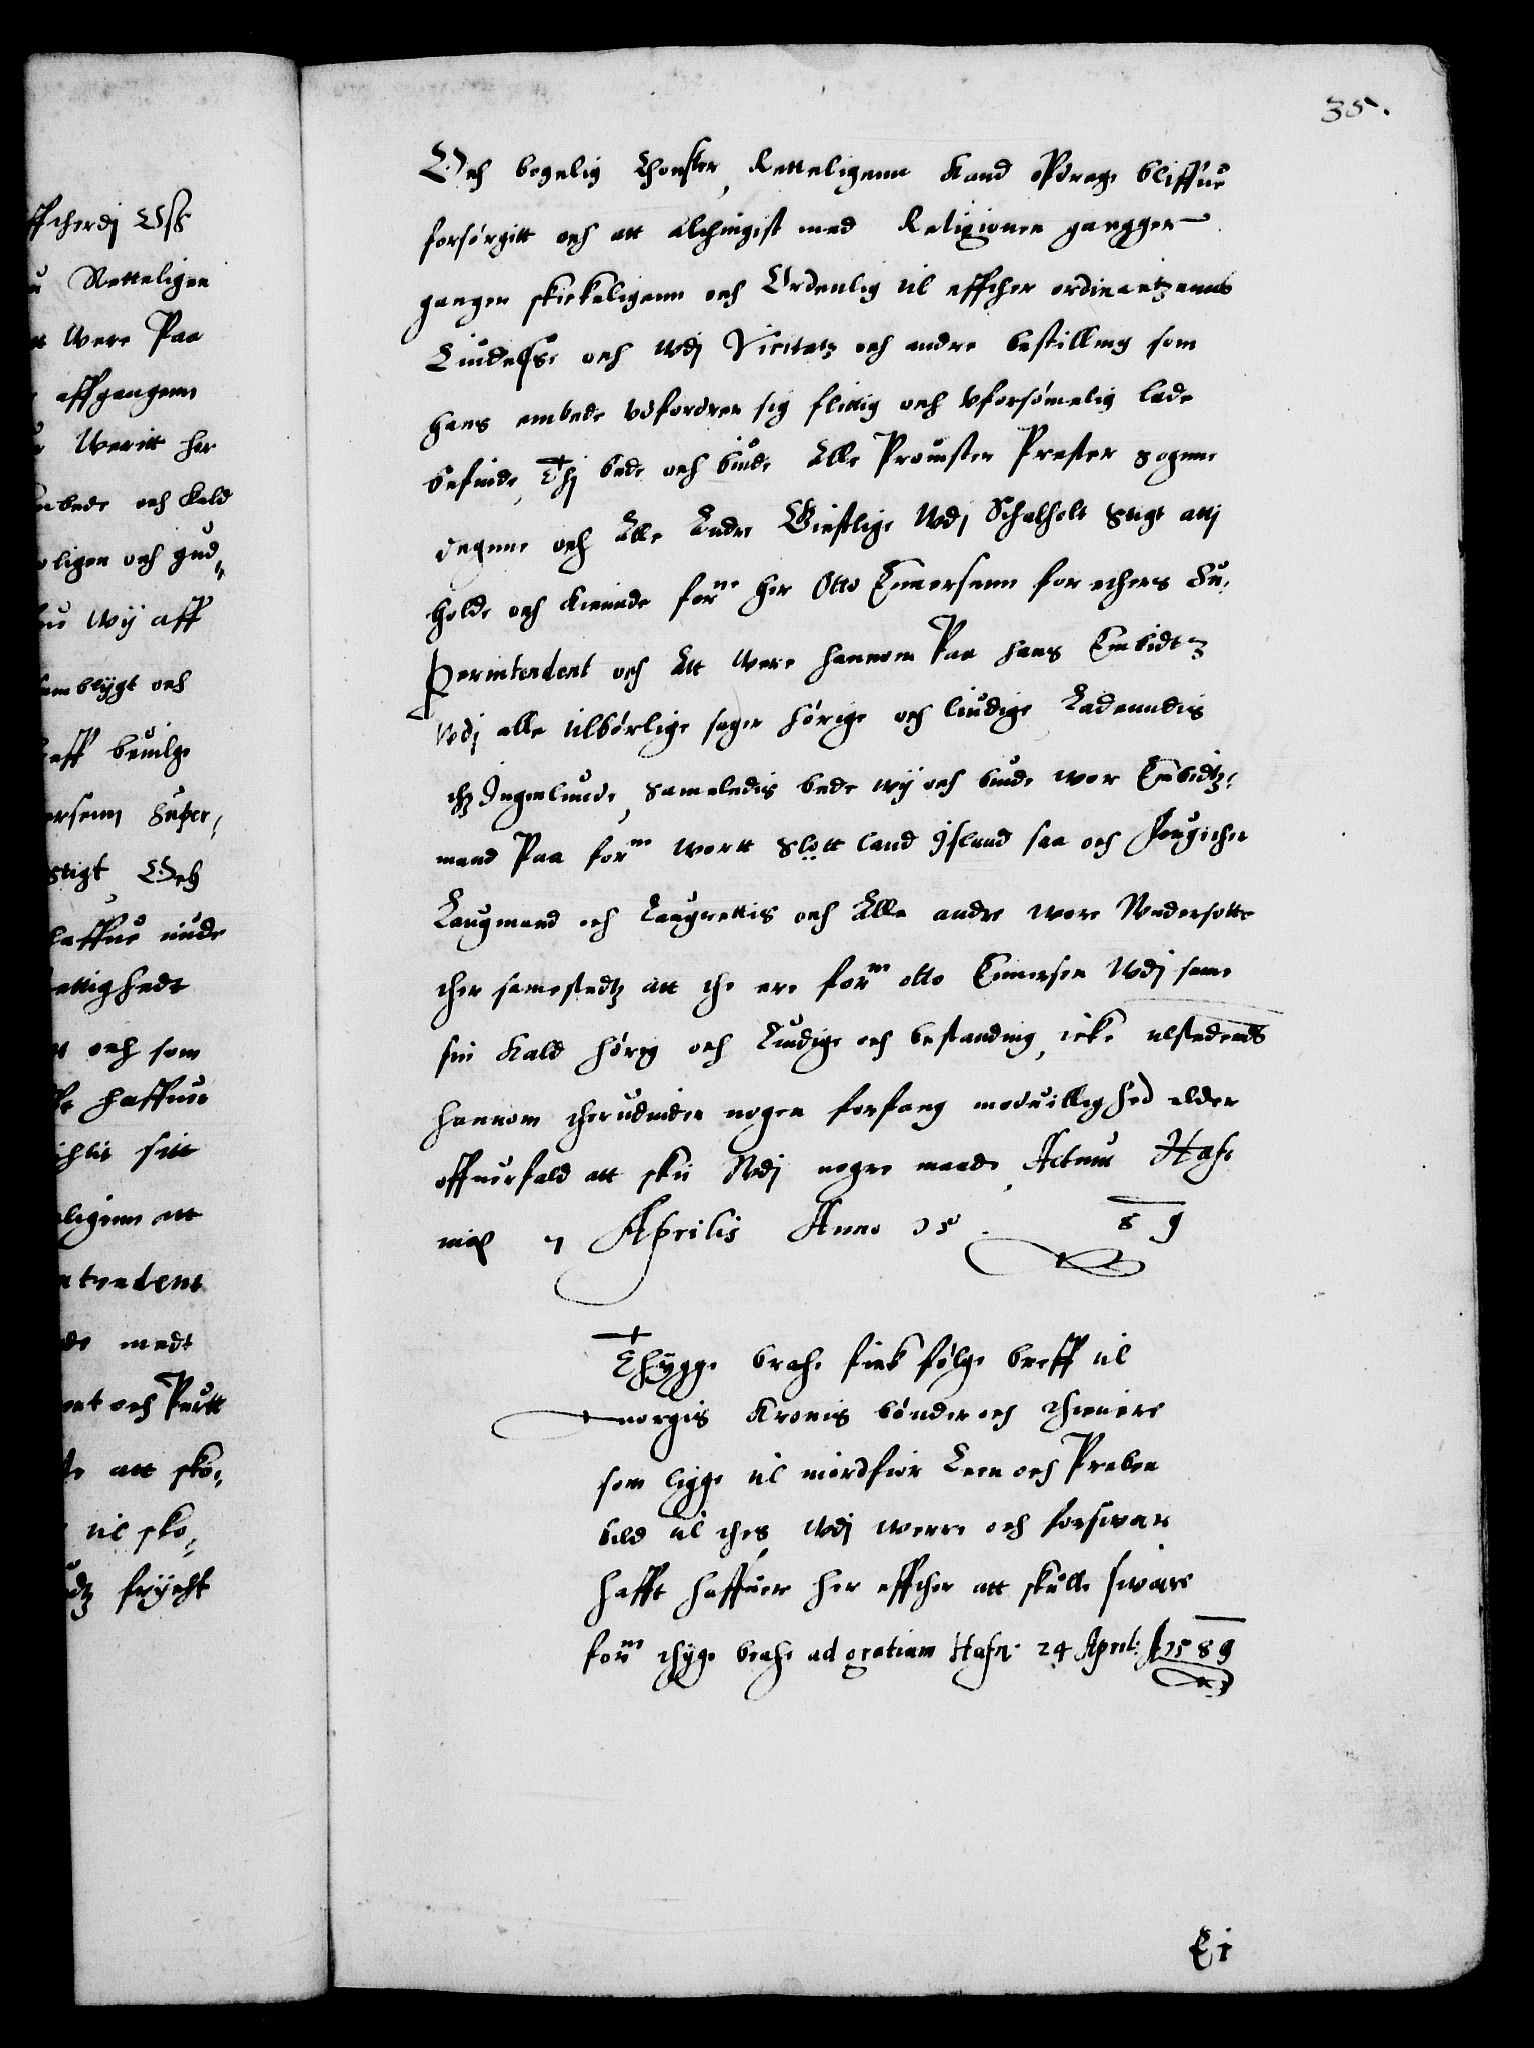 35.
Och bogelig Thonster, Retteligenn kand opdrage bliffue
forsørgitt och att alchingist med Religionen gangger
gangen skickeligenn och Ordenlig til effther ordinantzenns
Liudelsse och Wdj Visitatz och andre bestilling som
hans embede Udfordrer sig flittig och Uforsømelig lade
befinde, Thj bede och biude Alle Prouster Prester sogne
degnne och Alle Andre Giestlige Wdj Schalholt Stigt attj
holde och kiennde forne her Otto Ennersenn for ethers Su,
perintendent och Att Were hannom Paa hans Embidtz
Wdj alle tilbørlige sager hørige och liudige Ladenndis
thz Ingenlunde, Sameledis bede wij och biude wor Embidtz,
mand Paa forne wortt Slott land Island saa och
Laugmand och Laugrettis och Alle andre wore Undersotte
ther samestedtz att the ere forne otto Ennersen Wdj same
sin Kald hørig och Liudige och bestanding, icke tilstedends
hannom therudinden nogen forfang moduillighed elder
offuerfald att skii Wdj nogre maade, Actum Haf,
niæ 7 Aprilis Anno 15 89
Thygge brahe fick følge breff til
norgis Kronis bønder och thienere
som ligge til nordfior Leen och Preben
bild til thes, Wdj werre och forswar
hafft haffuer her effther att skulle sware
forne thyge brahe ad gratiam Hafn: 24 April: A 1589
Ei
ffcherdj Oss
Retteligen
Were Paa
affgangenn
Weritt her
bede och Kald
ligen och gud,,
Wij aff
blygt och
aff beuilge
ersenn Super,
Stigt, Och
haffue inde
ettighedt
och som
haffuer
sitt
ligenn att
ntendent
de medt
ent och Partt
att sko,
til sko,
dtz frycht